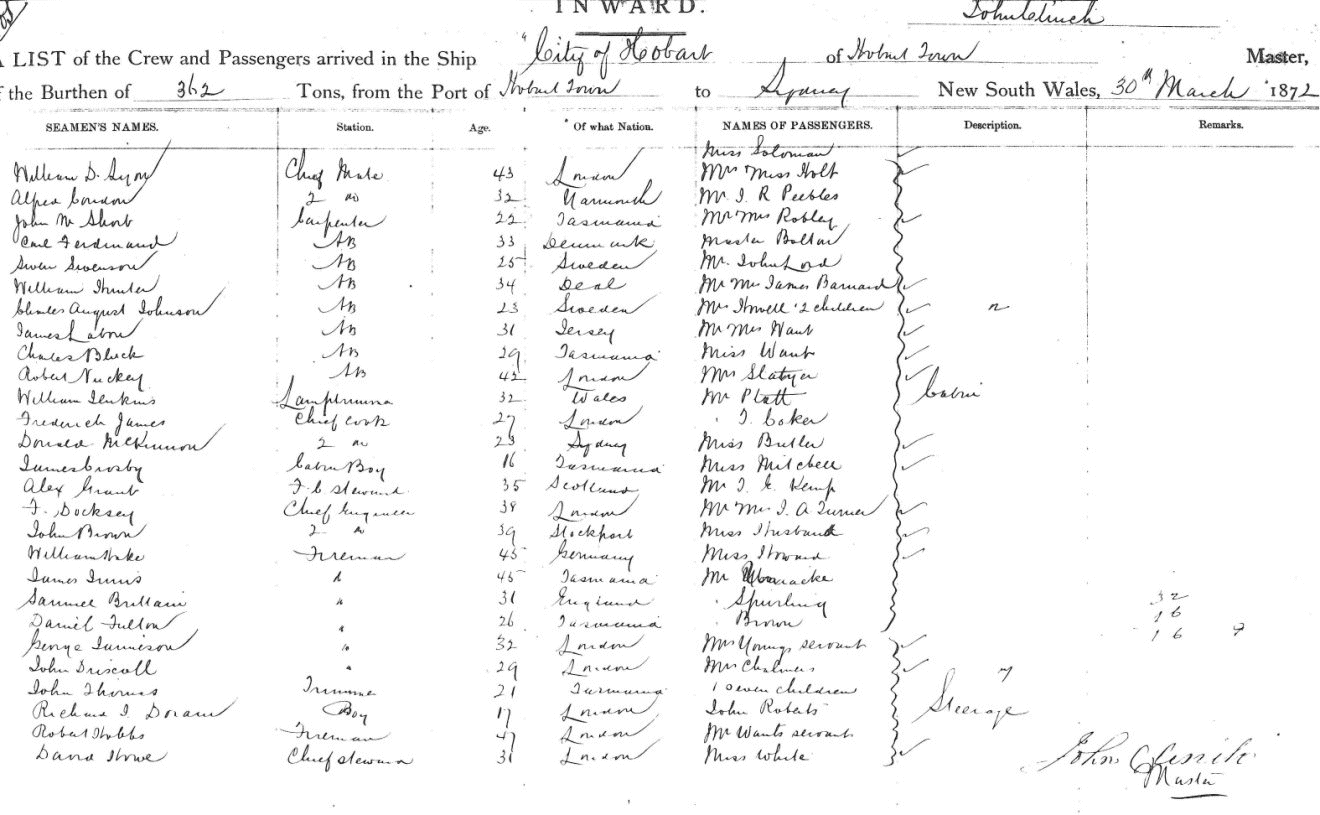 INWARD.
John Clinch
A LIST of the Crew and Passengers arrived in the Ship "City of Hobart of Hobart Town Master,
of the Burthen of 362 Tons, from the Port of Hobart Town to Sydney New South Wales, 30th March 1872
SEAMEN'S NAMES. Station. Age. Of what Nation. NAMES OF PASSENGERS. Description. Remarks.
Miss Soloman
William D. Lyon Chief Mate 43 London Mrs Miss Holt
Alfred Condon 2 do 32 Yarmouth Mr. J. R Peebles
John M Short Carpenter 22 Tasmania Mr Mrs Robley
Carl Ferdinand AB 33 Denmark Master Bolton
Swen Swenson AB 25 Sweden Mr. John Lord
William Hunter AB 34 Deal Mr Mrs James Barnard
Charles August Johnson AB 23 Sweden Mrs Howell 2 children 2
James AB 31 Jersey Mr Mrs Want
Charles Bluck AB 29 Tasmania Miss Want
Robert Nuckey AB 42 London Mrs Slatyer
William Jenkins Lamptrimmer 32 Wales Mr Platt Cabin
Frederick James Chief Cook 27 London " J. Coker
Donald McKinnon 2 do 23 Sydney Miss Butler
James Crosby Cabin Boy 16 Tasmania Miss Mitchell
Alex Grant F. C Steward 35 Scotland Mr J. E. Kemp
F. Docksey Chief Engineer 39 London Mr Mrs J. A Turner
John Brown 2 " 39 Stockport Miss Husband
William Hake Fireman 45 Germany Miss Howard
James Innis " 45 Tasmania Mr
Samuel Brittain " 31 England " Spurling 32
Daniel Fulton " 26 Tasmania " Brown 16
George Jamieson " 32 London Mrs Youngs servant 16 7
John Driscoll " 29 London Mrs Chalmers
John Thomas Trimmer 21 Tasmania seven children 7
Richard J. Doram Boy 17 London John Roberts Steerage
Robert Hobbs Fireman 47 London Mr Wants servant
David Howe Chief Steward 31 London Miss White
John Clinch
Master